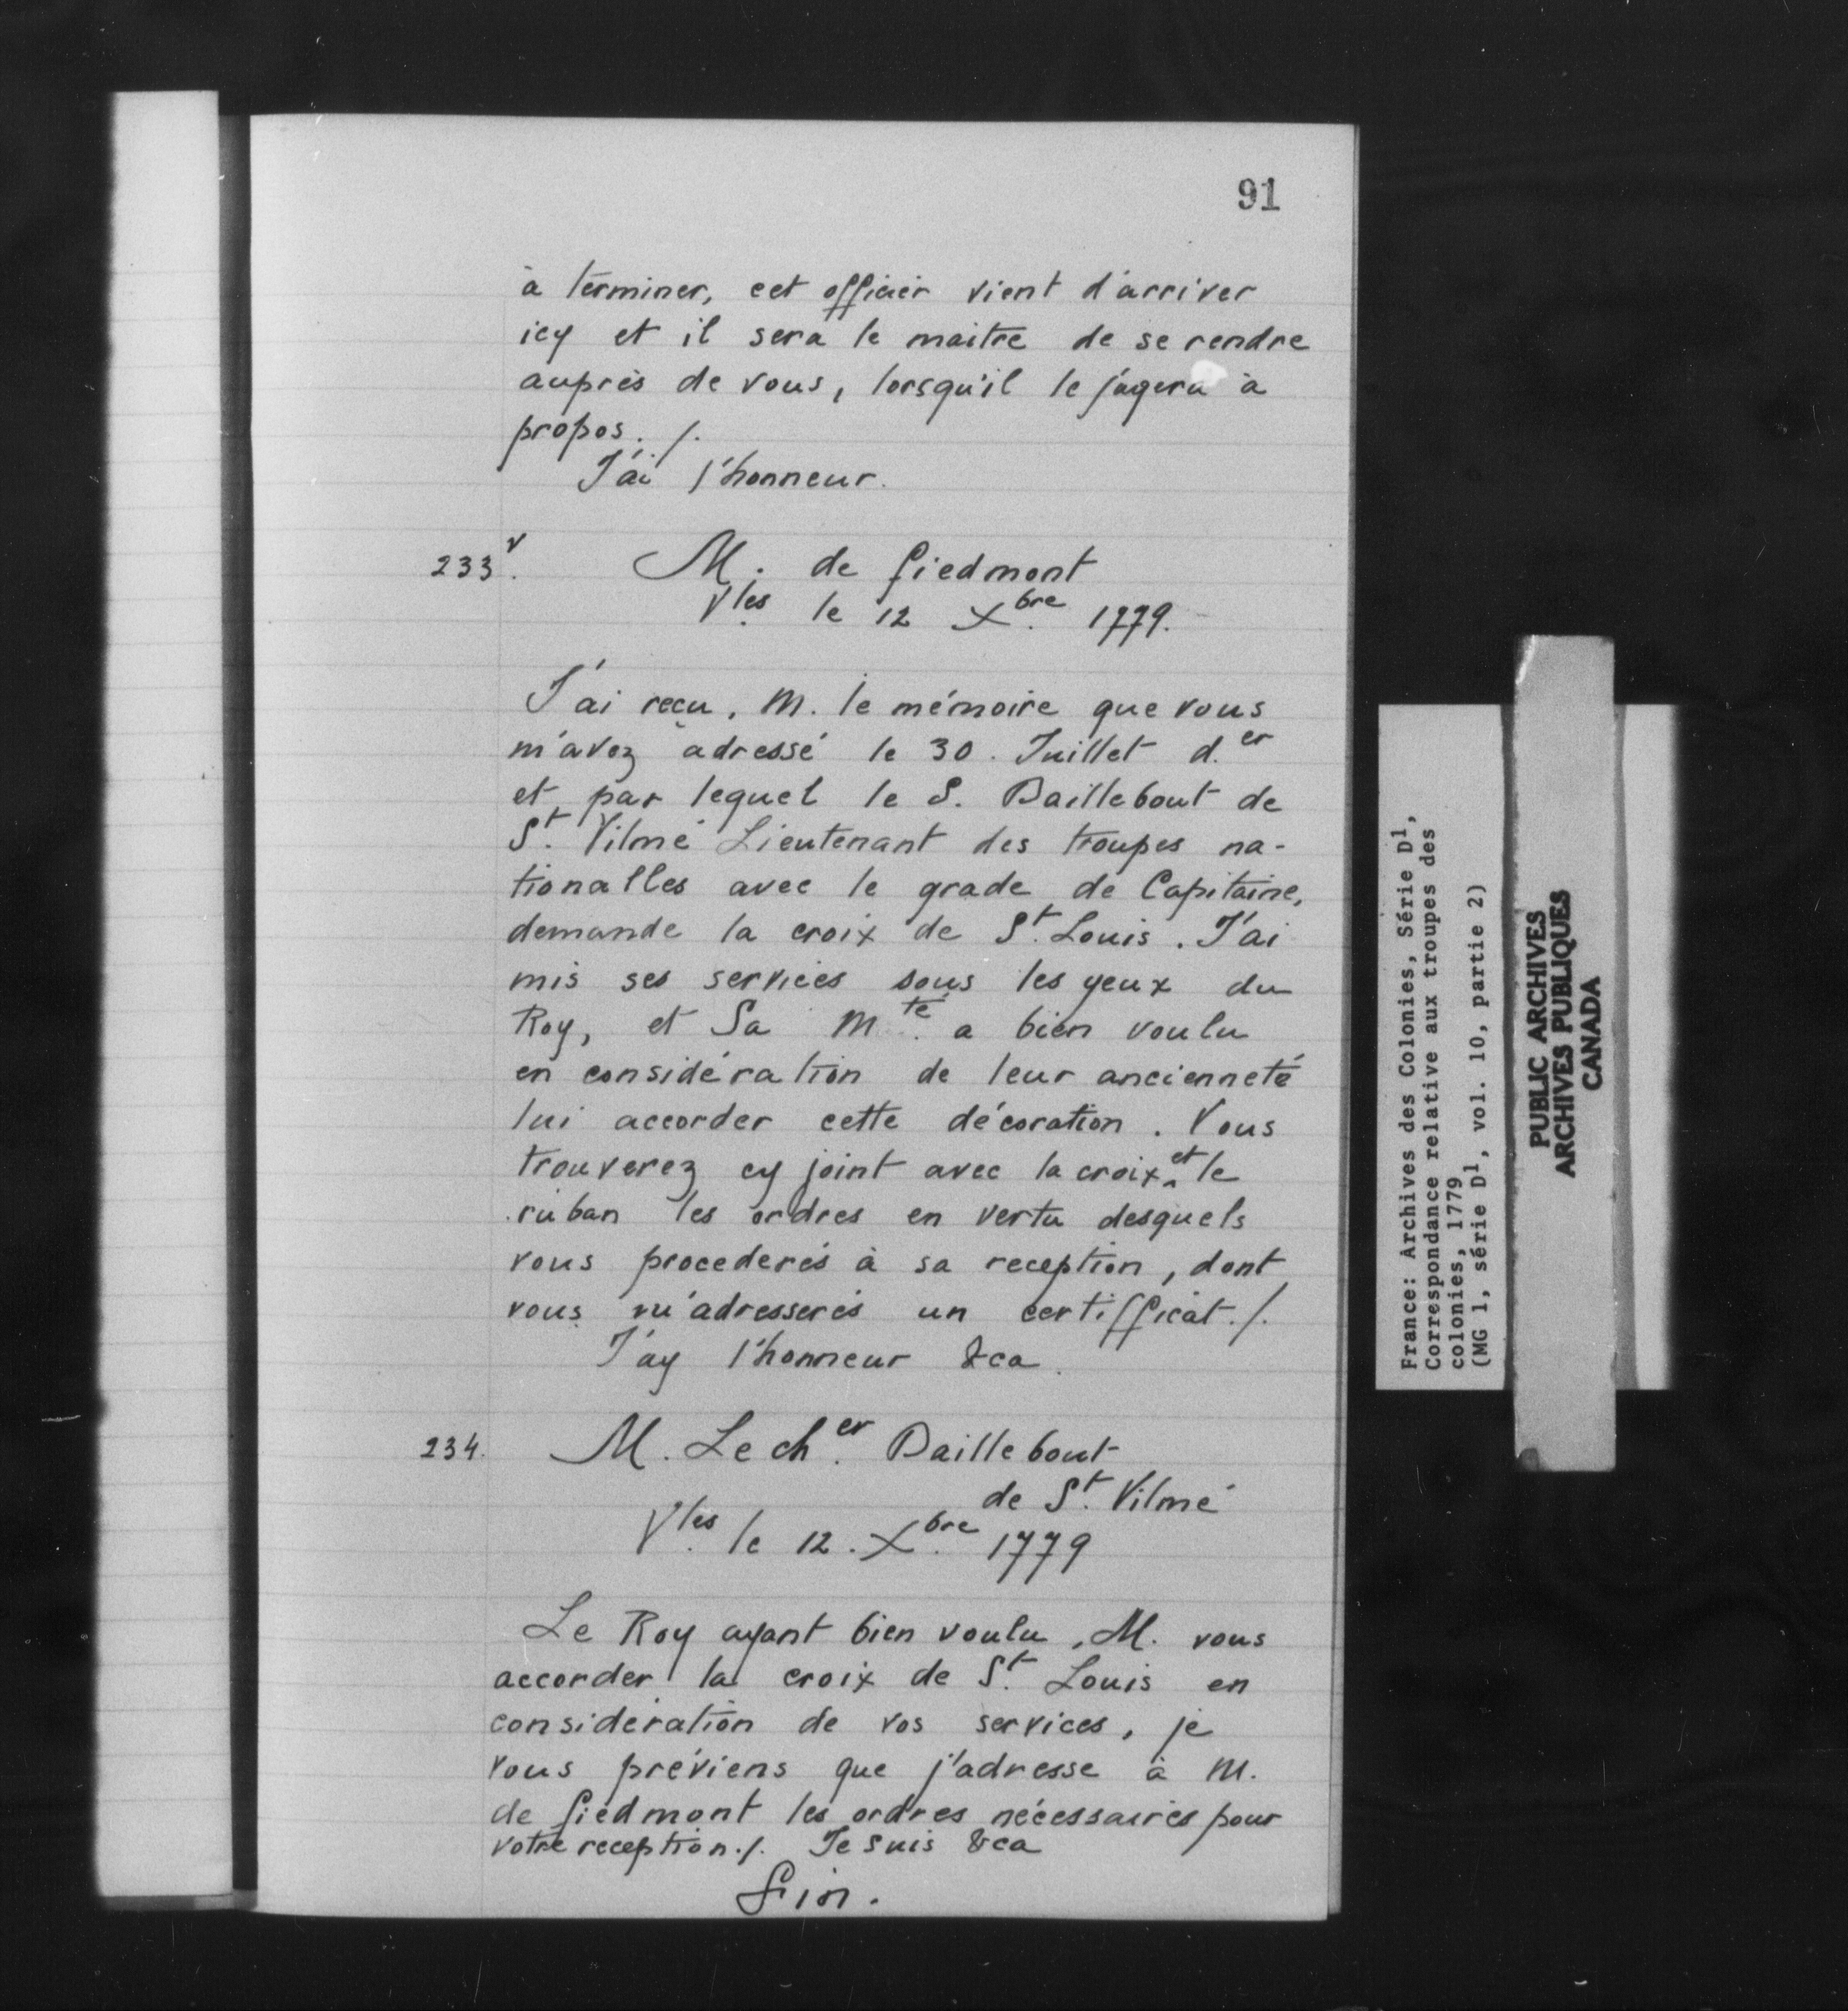 91
à terminer, cet officier vient d'arriver
icy et il sera le maitre de se rendre
auprès de vous, lorsqu'il le jugera à
propos. /.
J'ai l'honneur.
233v. M. de Fiedmont
Vles le 12 Xbre 1779.
J'ai reçu, M. le mémoire que vous
m'avez adressé le 30. Juillet d.er
et par lequel le S. Daillebout de
St. Vilmé Lieutenant des troupes na-
tionalles avec le grade de Capitaine,
demande la croix de St. Louis. J'ai
mis ses services sous les yeux du
Roy, et Sa Mté. a bien voulu
en considération de leur ancienneté
lui accorder cette décoration. Vous
trouverez cy joint avec la croix et le
ruban les ordres en vertu desquels
vous procederés à sa reception, dont
vous m'adresserés un certifficat./.
J'ay l'honneur &ca.
234. M. Le cher. Daillebout
de St. Vilmé
Vles. le 12. Xbre. 1779
Le Roy ayant bien voulu, M. vous
accorder la croix de St. Louis en
consideration de vos services, je
vous préviens que j'adresse à M.
de Fiedmont les ordres nécessaires pour
votre reception./. Je suis &ca
Fin.
France: Archives des Colonies, Série D1,
Correspondance relative aux troupes des
colonies, 1779
(MG 1, série D1, vol. 10, partie 2)
PUBLIC ARCHIVES
ARCHIVES PUBLIQUES
CANADA